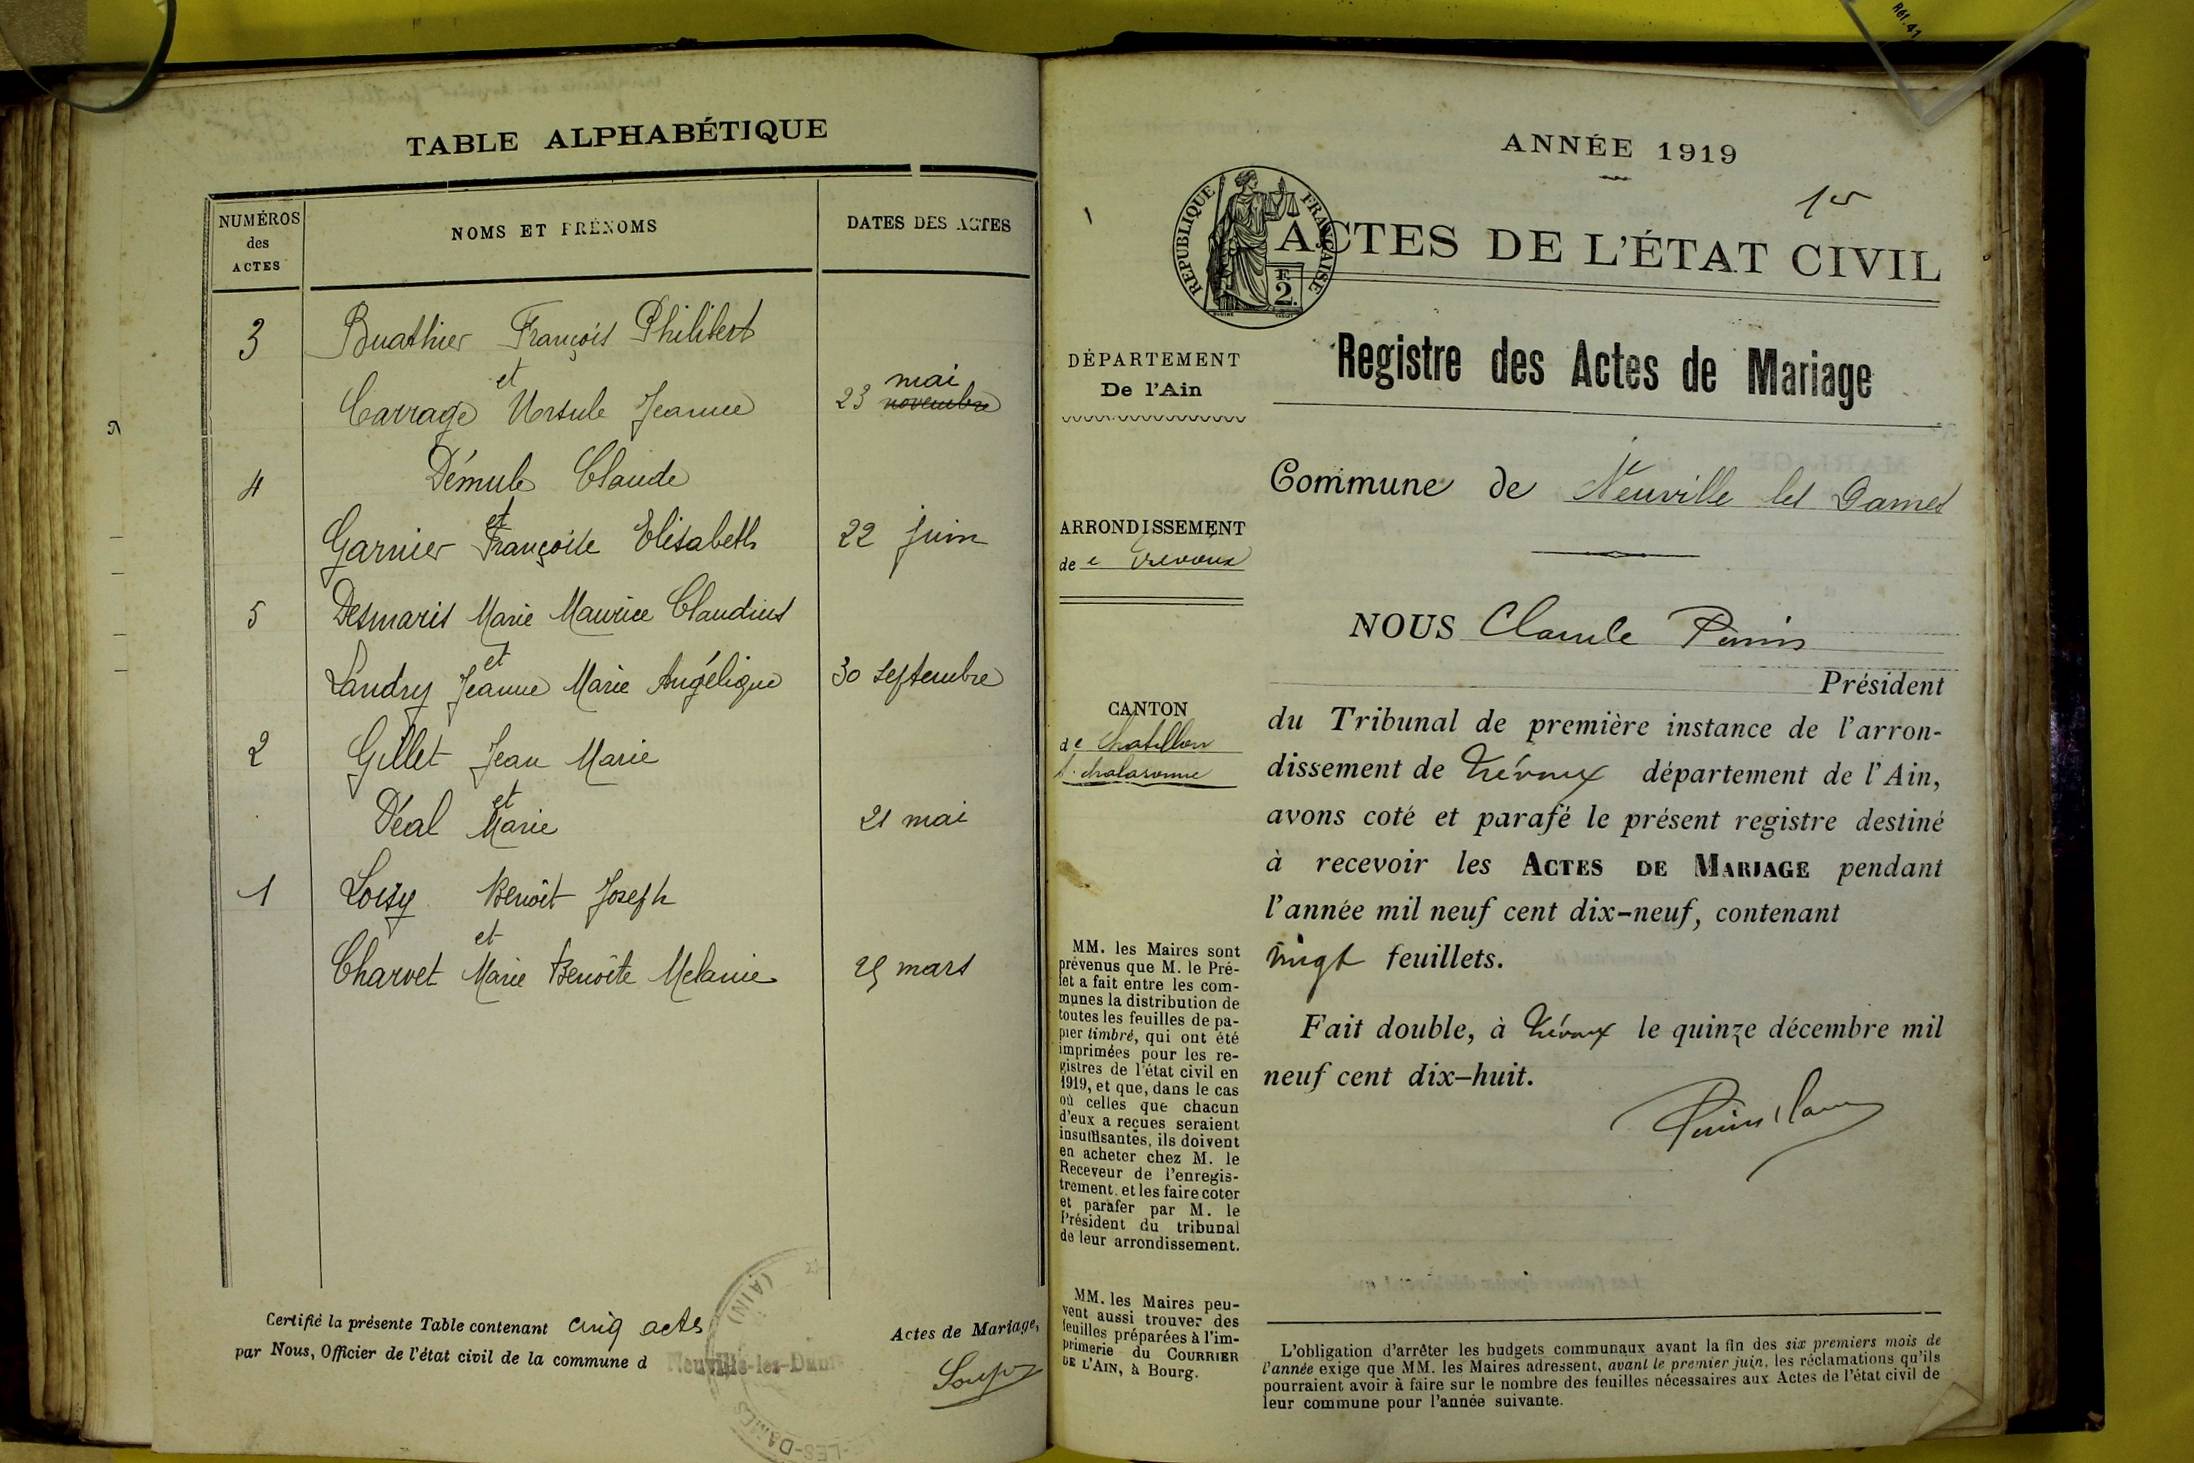 TABLE ALPHABÉTIQUE
NUMÉROS
des
ACTES
NOMS ET PRÉNOMS
DATES DES ACTES
3 Buathier François Philibert
et
Carrage Ursule Jeanne 23 mai novembre
4 Démule Claude
et
Garnier Françoise Elisabeth 22 juin
5 Desmaris Marie Maurice Claudius
et
Landry Jeanne Marie Angélique 30 septembre
2 Gillet Jean Marie
et
Déal Marie 21 mai
1 Loisy Benoît Joseph
et
Charvet Marie Benoîte Melanie 25 mars
Certifié la présente Table contenant cinq actes Actes de Mariage,
par Nous, Officier de l'état civil de la commune d Neuville-les-Dames
(AIN)
LES-DAMES
Réf. 41
ANNÉE 1919
1er
RÉPUBLIQUE FRANÇAISE
F.
2.
ACTES DE L'ÉTAT CIVIL
Registre des Actes de Mariage
DÉPARTEMENT
De l'Ain
ARRONDISSEMENT
de Trevoux
CANTON
de Chatillon
s. chalaronne
MM. les Maires sont
prévenus que M. le Pré-
fet a fait entre les com-
munes la distribution de
toutes les feuilles de pa-
pier timbré, qui ont été
imprimées pour les re-
gistres de l'état civil en
1919, et que, dans le cas
où celles que chacun
d'eux a reçues seraient
insuffisantes, ils doivent
en acheter chez M. le
Receveur de l'enregis-
trement, et les faire coter
et parafer par M. le
Président du tribunal
de leur arrondissement.
MM. les Maires peu-
vent aussi trouver des
feuilles préparées à l'im-
primerie du COURRIER
DE L'AIN, à Bourg.
Commune de Neuville les Dames
NOUS Claude Perrin
Président
du Tribunal de première instance de l'arron-
dissement de Trévoux département de l'Ain,
avons coté et parafé le présent registre destiné
à recevoir les ACTES DE MARIAGE pendant
l'année mil neuf cent dix-neuf, contenant
vingt feuillets.
Fait double, à Trévoux le quinze décembre mil
neuf cent dix-huit.
L'obligation d'arrêter les budgets communaux avant la fin des six premiers mois de
l'année exige que MM. les Maires adressent, avant le premier juin, les réclamations qu'ils
pourraient avoir à faire sur le nombre des feuilles nécessaires aux Actes de l'état civil de
leur commune pour l'année suivante.